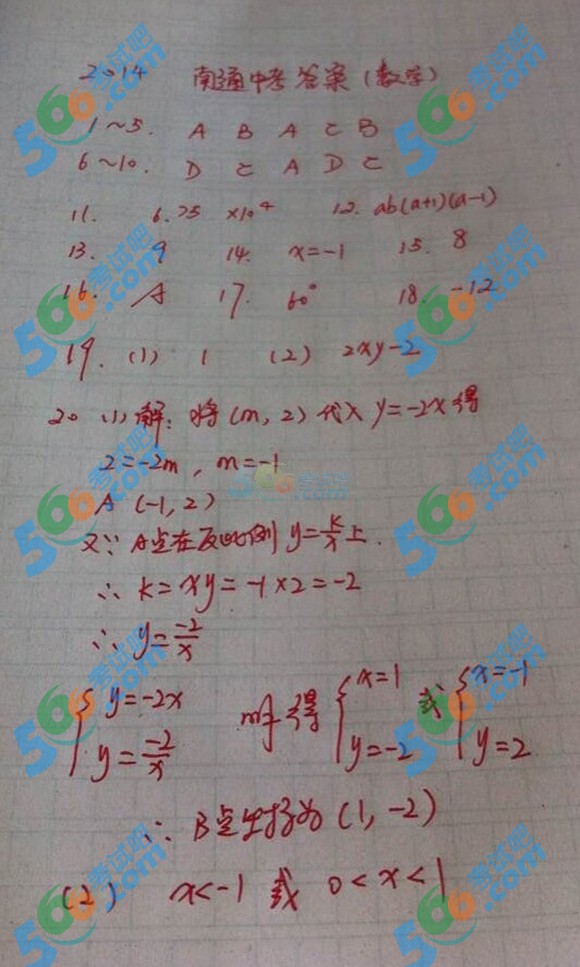 2014 南通中考答案(数学)
1~5. A B A C B
6~10. D C A D C
11. 6.75 ×10⁴ 12. ab(a+1)(a-1)
13. 9 14. x=-1 15. 8
16. A 17. 60° 18. -12
19. (1) 1 (2) 2xy-2
20 (1) 解: 将 (m, 2) 代入 y=-2x 得
2=-2m , m=-1
A (-1, 2)
又∵ A点在反比例 y=k/x 上.
∴ k=xy=-1×2=-2
∴ y=-2/x
{ y=-2x
y=-2/x 得 { x=1
y=-2 或 { x=-1
y=2
∴ B点坐标为 (1, -2)
(2) x<-1 或 0<x<1
566考试吧
.com